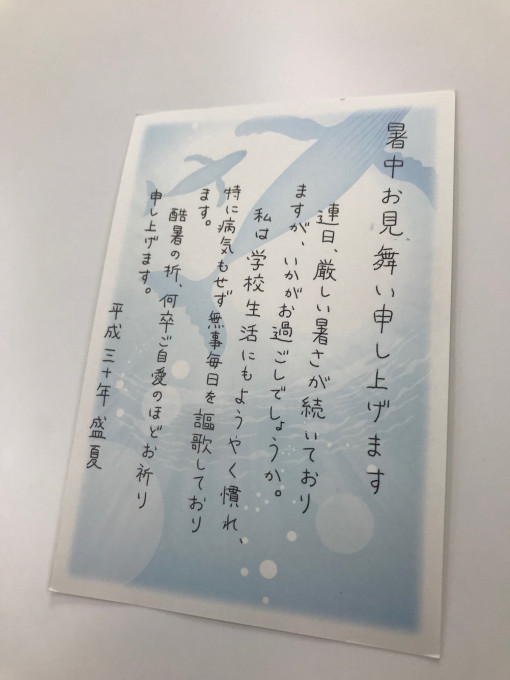 暑中お見舞い申し上げます
連日、厳しい暑さが続いており
ますが、いかがお過ごしでしょうか。
私は学校生活にもようやく慣れ、
特に病気もせず無事毎日を謳歌しており
ます。
酷暑の折、何卒ご自愛のほどお祈り
申し上げます。
平成三十年 盛夏